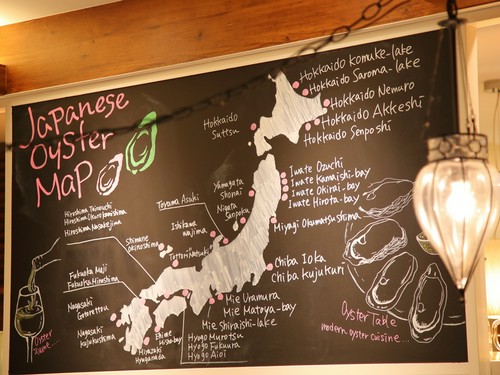 Japanese
Oyster
Map
Hokkaido Komuke-lake
Hokkaido Saroma-lake
Hokkaido Nemuro
Hokkaido Akkeshi
Hokkaido Senposhi
Hokkaido
Suttsu
Iwate Ozuchi
Iwate Kamaishi-bay
Iwate Okirai-bay
Iwate Hirota-bay
Miyagi Okumatsushima
Yamagata
Shonai
Nigata
Sanpoku
Toyama Asuki
Ishikawa
Wajima
Shimane
okinoshima
Tottori Natsuki
Hiroshima
Hiroshima
Hiroshima
Fukuoka
Nagasaki
Nagasaki
kujukushima
Miyazaki
Ehime
Chiba Ioka
Chiba kujukuri
Mie Uramura
Mie Matoya-bay
Mie Shiraishi-lake
Hyogo Murotsu
Hyogo Fukuura
Hyogo Aioi
Oyster Table
modern oyster cuisine....
Oyster